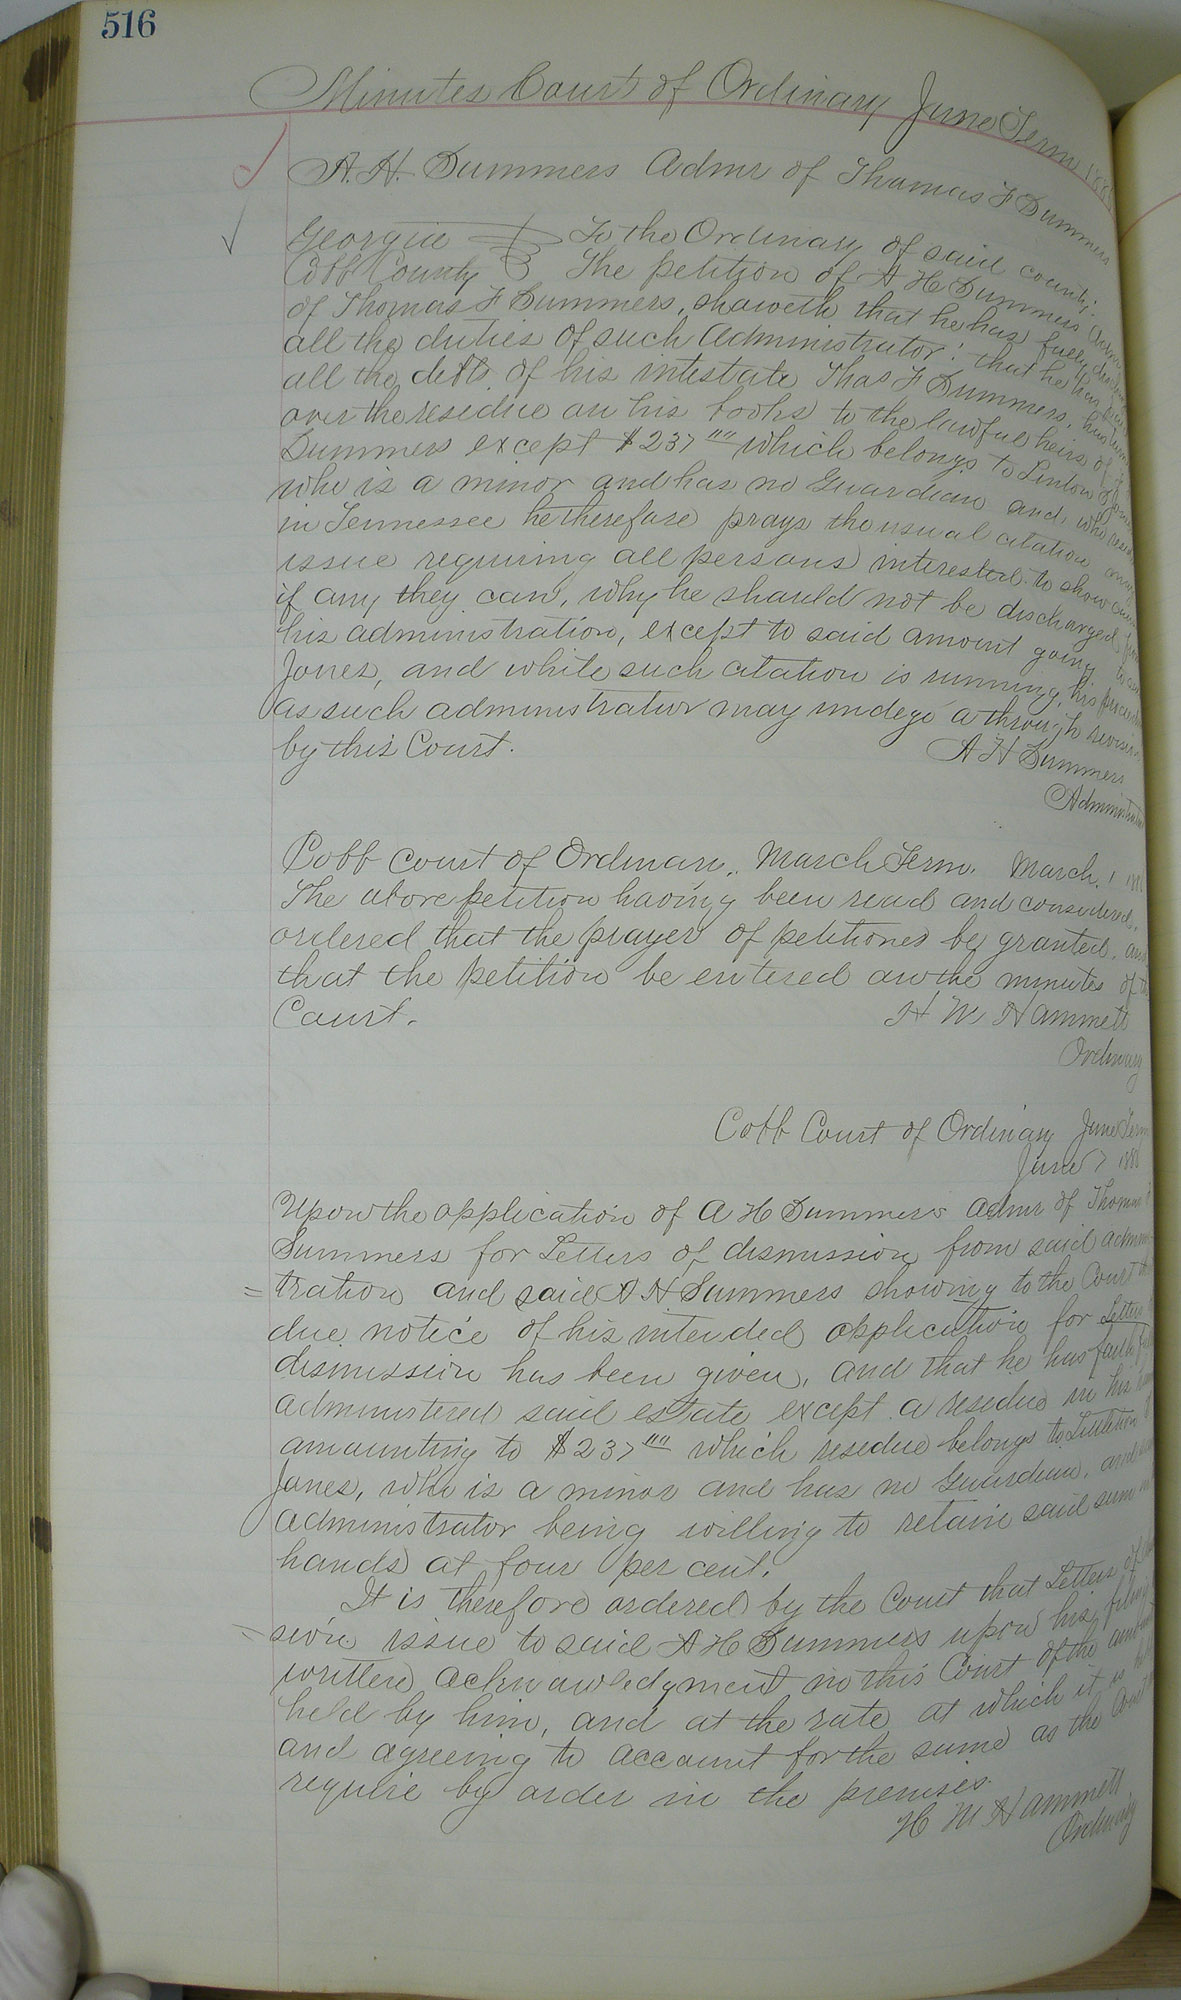 516
Minutes Court of Ordinary June Term
A. H. Summers Admr of Thomas F Summers
Georgia To the Ordinary of said county:
Cobb County The petition of A H Summers
of Thomas F Summers, showeth that he has fully
all the duties of such Administrator: that he has
all the debts of his intestate Thos F Summers, has
over the residue on his books to the lawful heirs of
Summers except $237 "" which belongs to Linton
who is a minor and has no Guardian and who
in Tennessee he therefore prays the usual citation
issue requiring all persons interested to show
if any they can, why he should not be discharged
his administration, except to said amount going to
Jones, and while such citation is running, his
as such administrator may undego a through
by this Court.
A H Summers
Administrator
Cobb Court of Ordinary. March Term. March 1
The above petition having been read and considered.
ordered that the prayer of petitioner be granted. and
that the petition be entered on the minutes of
Court.
H M Hammett
Ordinary
Cobb Court of Ordinary June Term
June 7
Upon the application of A H Summers admr of Thomas
Summers for Letters of dismission from said
=tration and said A H Summers showing to the Court
due notice of his intended application for Letters
dismission has been given, and that he has
administered said estate except a residue in his
amounting to $237 "" which residue belongs to
Jones, who is a minor and has no Guardian, and
administrator being willing to retain said sum
hands at four per cent.
It is therefore ordered by the Court that Letters of
=sion issue to said A H Summers upon his filing
written acknowledgment in this Court of the amount
held by him, and at the rate at which it is
and agreeing to account for the same as the Court
require by order in the premises.
H M Hammett
Ordinary